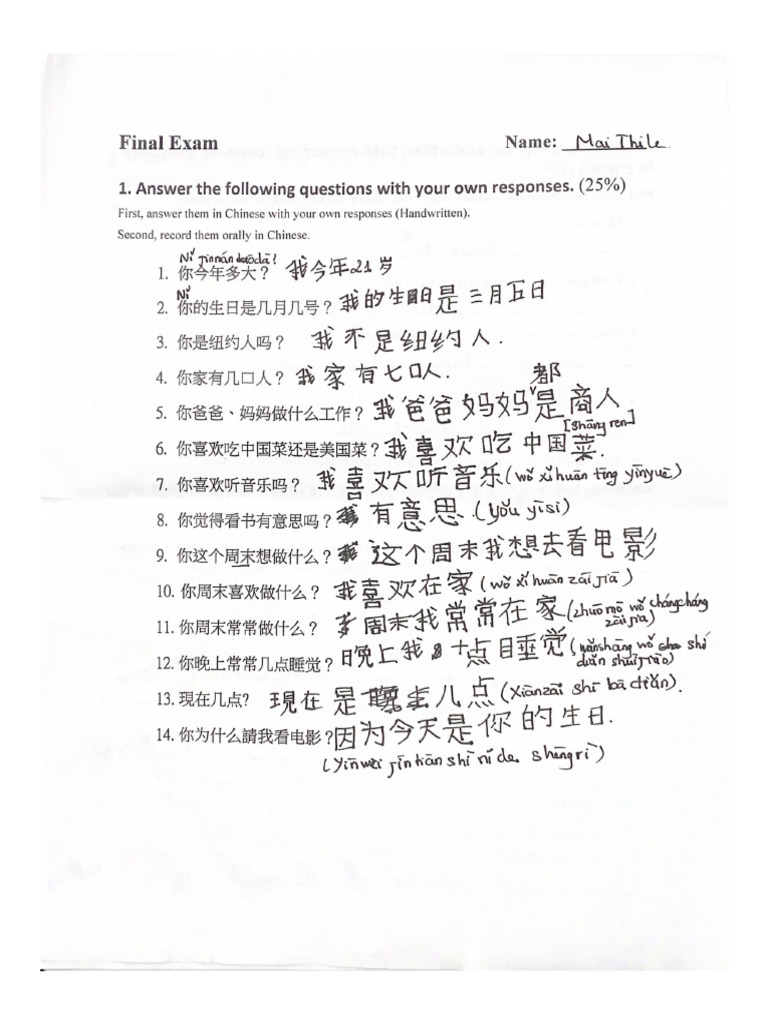 Final Exam Name: Mai Thi le.
1. Answer the following questions with your own responses. (25%)
First, answer them in Chinese with your own responses (Handwritten).
Second, record them orally in Chinese.
Nǐ jīnnán duōdà?
1. 你今年多大？ 我今年21岁
Nǐ
2. 你的生日是几月几号？ 我的生日是三月五日
3. 你是纽约人吗？ 我不是纽约人.
4. 你家有几口人？ 我家有七口人.
都
5. 你爸爸、妈妈做什么工作？ 我爸爸妈妈是商人
[shāng ren]
6. 你喜欢吃中国菜还是美国菜？ 我喜欢吃中国菜.
7. 你喜欢听音乐吗？ 我喜欢听音乐(wǒ xǐhuān tīng yīnyuè)
8. 你觉得看书有意思吗？ 有意思 (yǒu yīsi)
9. 你这个周末想做什么？ 这个周末我想去看电影
10. 你周末喜欢做什么？ 我喜欢在家(wǒ xǐhuān zāi jiā)
11. 你周末常常做什么？ 周末我常常在家(zhuōmò wǒ chángcháng
zāi jiā)
12. 你晚上常常几点睡觉？ 晚上我十点睡觉(wǎnshàng wǒ shí
diǎn shuìjiào)
13. 現在几点? 現在是八点(xiànzài shì bā diǎn).
14. 你为什么請我看电影？ 因为今天是你的生日.
(yīnwèi jīntiān shì nǐ de shēngrì)